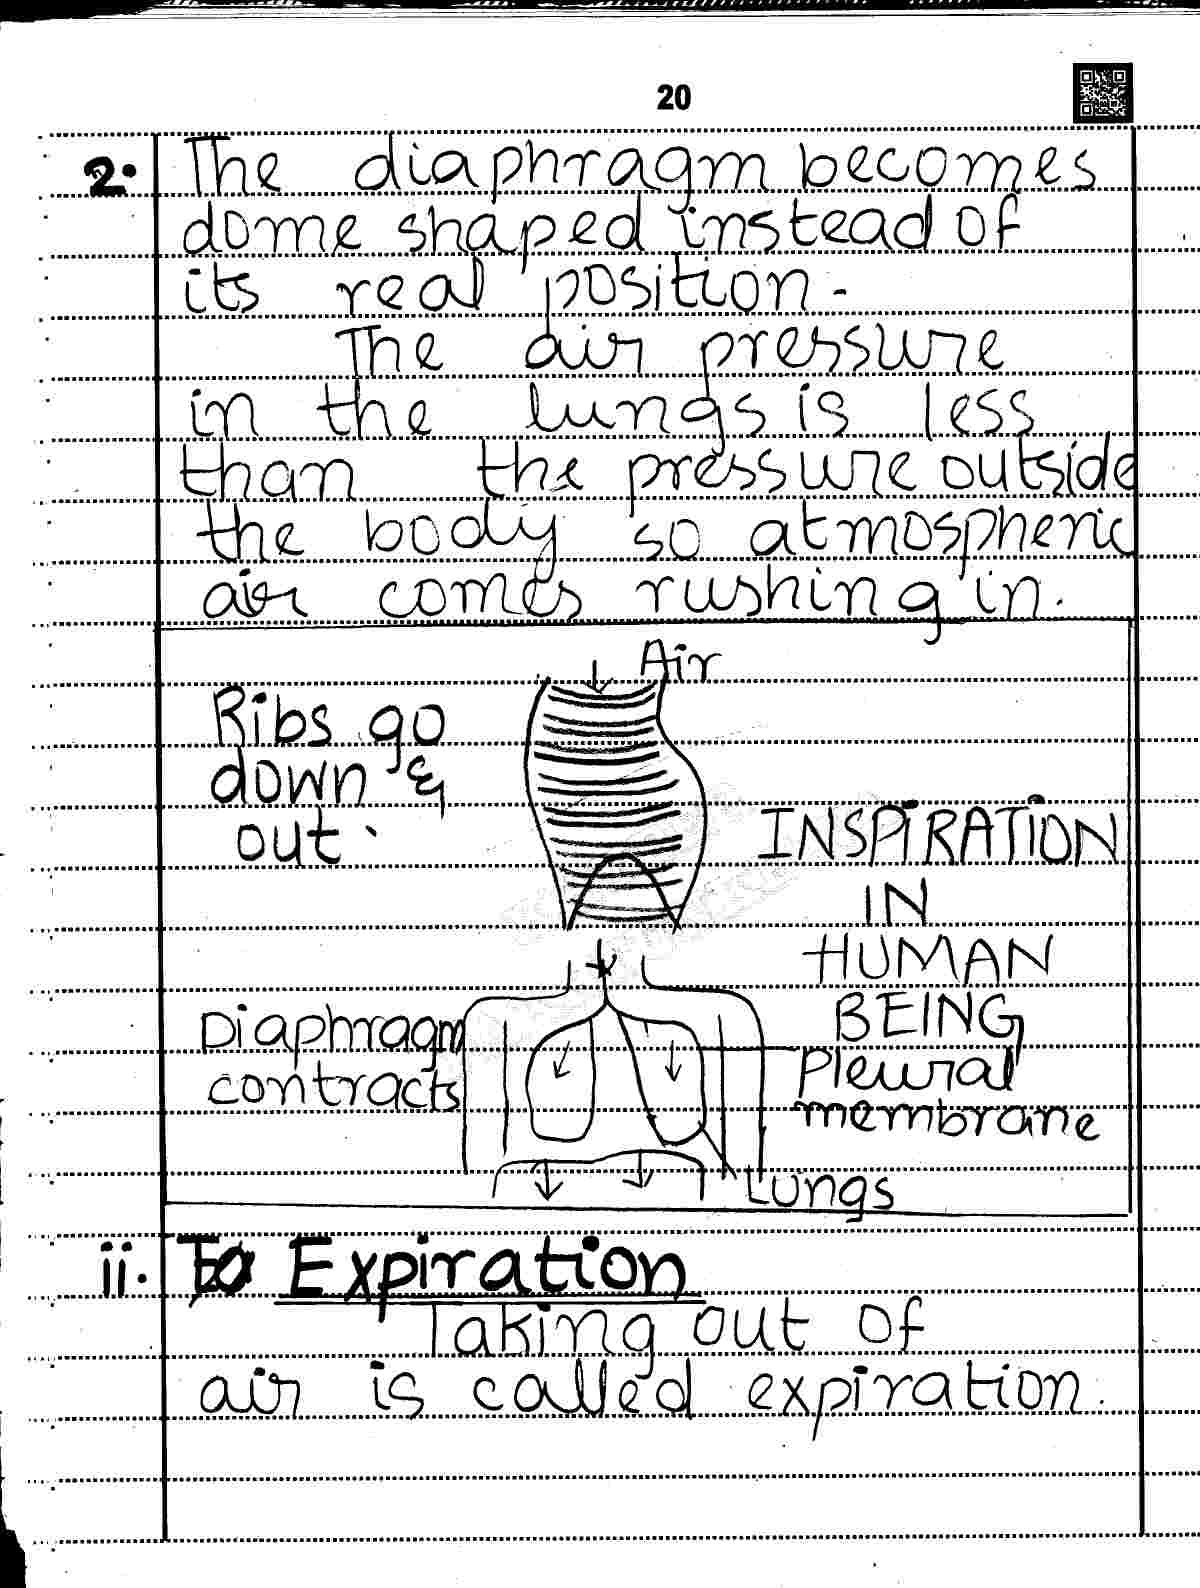 20
2. The diaphragm becomes
dome shaped instead of
its real position.
The air pressure
in the lungs is less
than the pressure outside
the body so atmospheric
air comes rushing in.
Air
Ribs go
down &
out.
INSPIRATION
IN
HUMAN
BEING
Diaphragm
contracts
Pleural
membrane
Lungs
ii. To Expiration
Taking out of
air is called expiration.